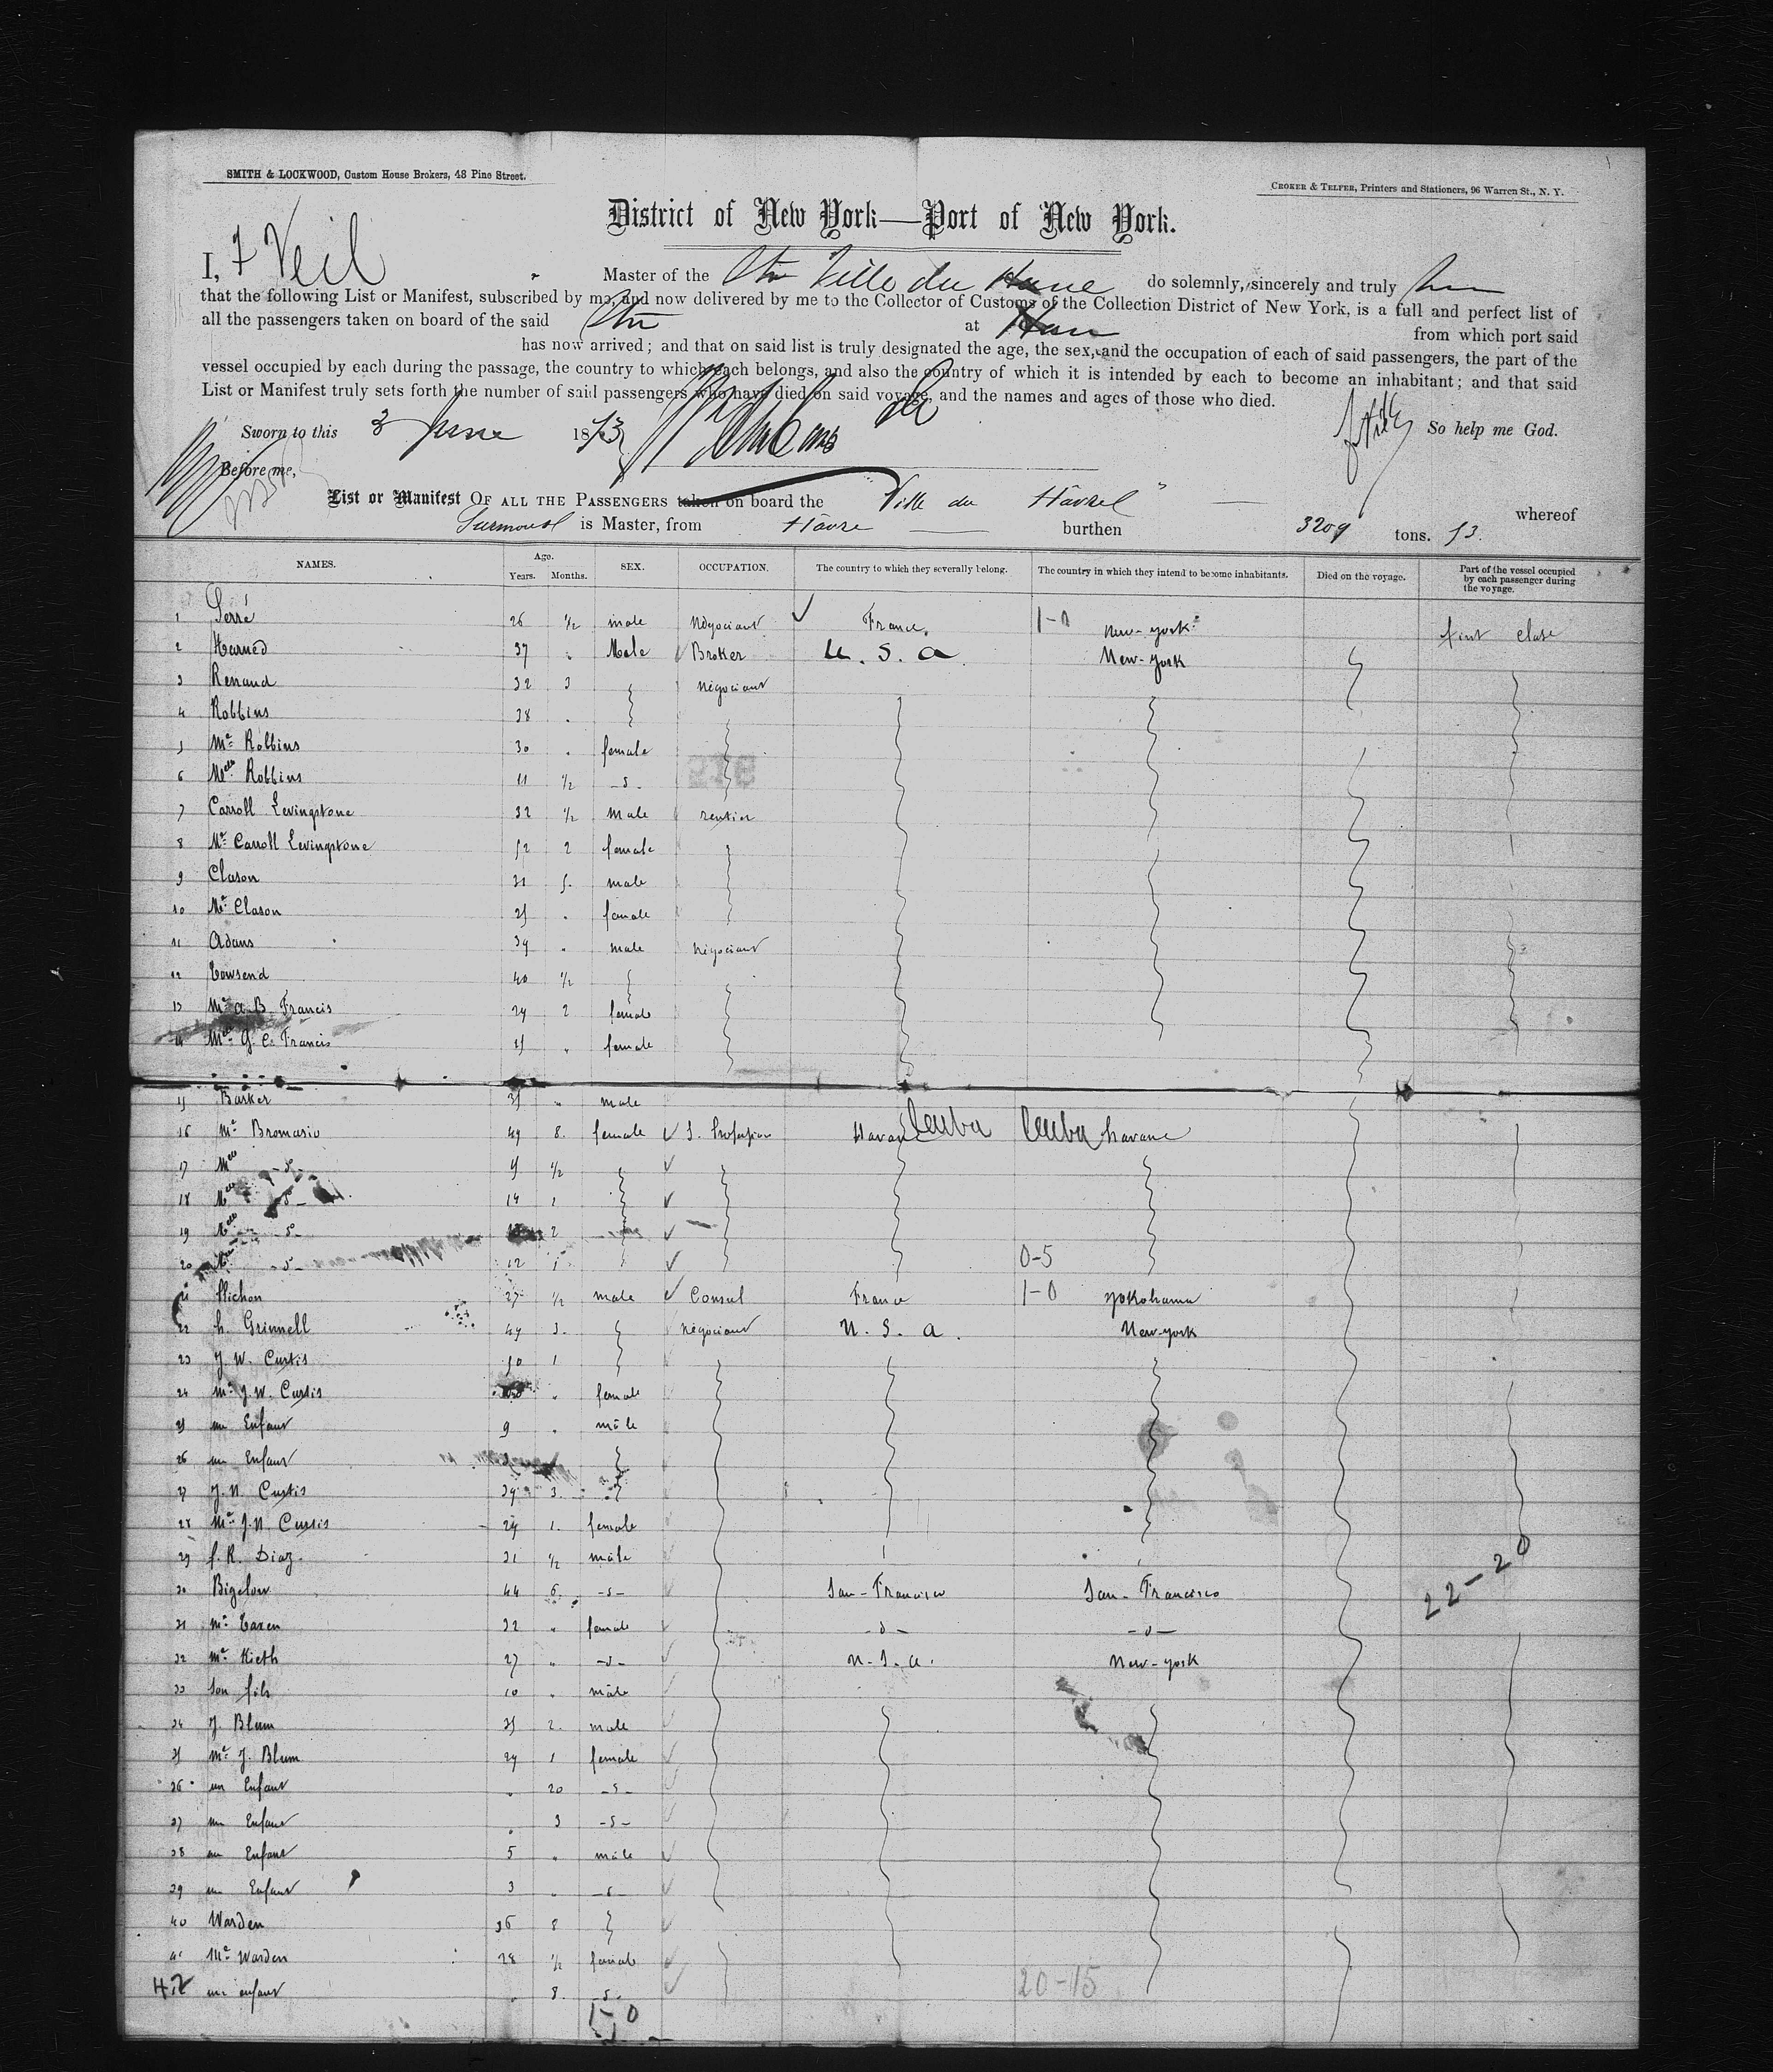 SMITH & LOCKWOOD, Custom House Brokers, 48 Pine Street.
CROKER & TELFER, Printers and Stationers, 96 Warren St., N. Y.
District of New York—Port of New York.
I, Veil Master of the Str Ville du Havre do solemnly, sincerely and truly
that the following List or Manifest, subscribed by me, and now delivered by me to the Collector of Customs of the Collection District of New York, is a full and perfect list of
all the passengers taken on board of the said Str at Havre from which port said
has now arrived; and that on said list is truly designated the age, the sex, and the occupation of each of said passengers, the part of the
vessel occupied by each during the passage, the country to which each belongs, and also the country of which it is intended by each to become an inhabitant; and that said
List or Manifest truly sets forth the number of said passengers who have died on said voyage, and the names and ages of those who died.
Sworn to this 3 June 1873 So help me God.
Before me,
List or Manifest OF ALL THE PASSENGERS taken on board the Ville du Hâvre whereof
Surmont is Master, from Hâvre burthen 3209 tons. 53.
NAMES. Age. Years. Months. SEX. OCCUPATION. The country to which they severally belong. The country in which they intend to become inhabitants. Died on the voyage. Part of the vessel occupied by each passenger during the voyage.
1 Serré 26 1/2 male Négociant France. 1-0 New-york first
2 Harned 37 " Male Broker U. S. a New-york
3 Renaud 32 3 Négociant
4 Robbins 38 .
5 Me Robbins 30 . female
6 Melle Robbins 11 1/2 -d-
7 Carroll Levingstone 32 1/2 Male rentier
8 Me Carroll Levingstone 52 2 female
9 Clason 31 5. male
10 Me Clason 25 . female
11 Adans 39 . male Négociant
12 Towsend 40 1/2
13 Me a. B. Francis 29 2 female
14 Melle G. C. Francis 25 " female
15 Barker 35 " male
16 Me Bromasio 49 8. female S. Profession Havane Cuba Cuba havane
17 Melle -do- 1/2
18 Melle 14 1
19 Melle -do- 2
20 -do- 12 0-5
21 Plichon 27 1/2 male Consul France 1-0 yokohama
22 h. Grinnell 49 3. Négociant U. S. a. New-york
23 J. W. Curtis 50 1
24 Me J. W. Curtis " female
25 un Enfant 9 . mâle
26 un Enfant
27 J. N. Curtis 39 3.
28 Me J. N. Curtis 29 1. female
29 f. R. Diaz. 31 1/2 mâle
30 Bigelow 44 6. -d- San-Francisco San-Francisco 22-20
31 Me 32 " female -d- -d-
32 Me Kieth 27 " -d- U. S. a. New-york
33 son fils 10 . mâle
34 J. Blum 35 2. male
35 Me J. Blum 29 1 female
36 un Enfant . 20 -d-
37 un Enfant . 3 -d-
38 un Enfant 5 " mâle
39 un Enfant 3 . -d-
40 Warden 36 8
41 Me Warden 28 1/2 female
42 un enfant 8. -d- 20-15
1-0